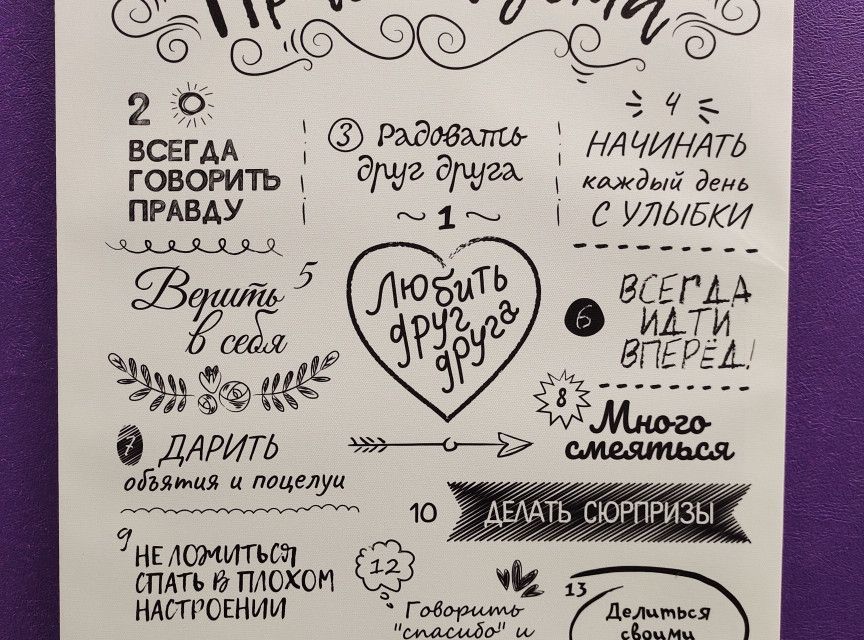 2
ВСЕГДА
ГОВОРИТЬ
ПРАВДУ
3 Радовать
друг друга
4
НАЧИНАТЬ
каждый день
С УЛЫБКИ
1
Любить
друг
друга
Верить 5
в себя
6
ВСЕГДА
ИДТИ
ВПЕРЁД!
7 ДАРИТЬ
объятия и поцелуи
8
Много
смеяться
9
НЕ ЛОЖИТЬСЯ
СПАТЬ В ПЛОХОМ
НАСТРОЕНИИ
10 ДЕЛАТЬ СЮРПРИЗЫ
12
Говорить
"спасибо" и
13
Делиться
своими